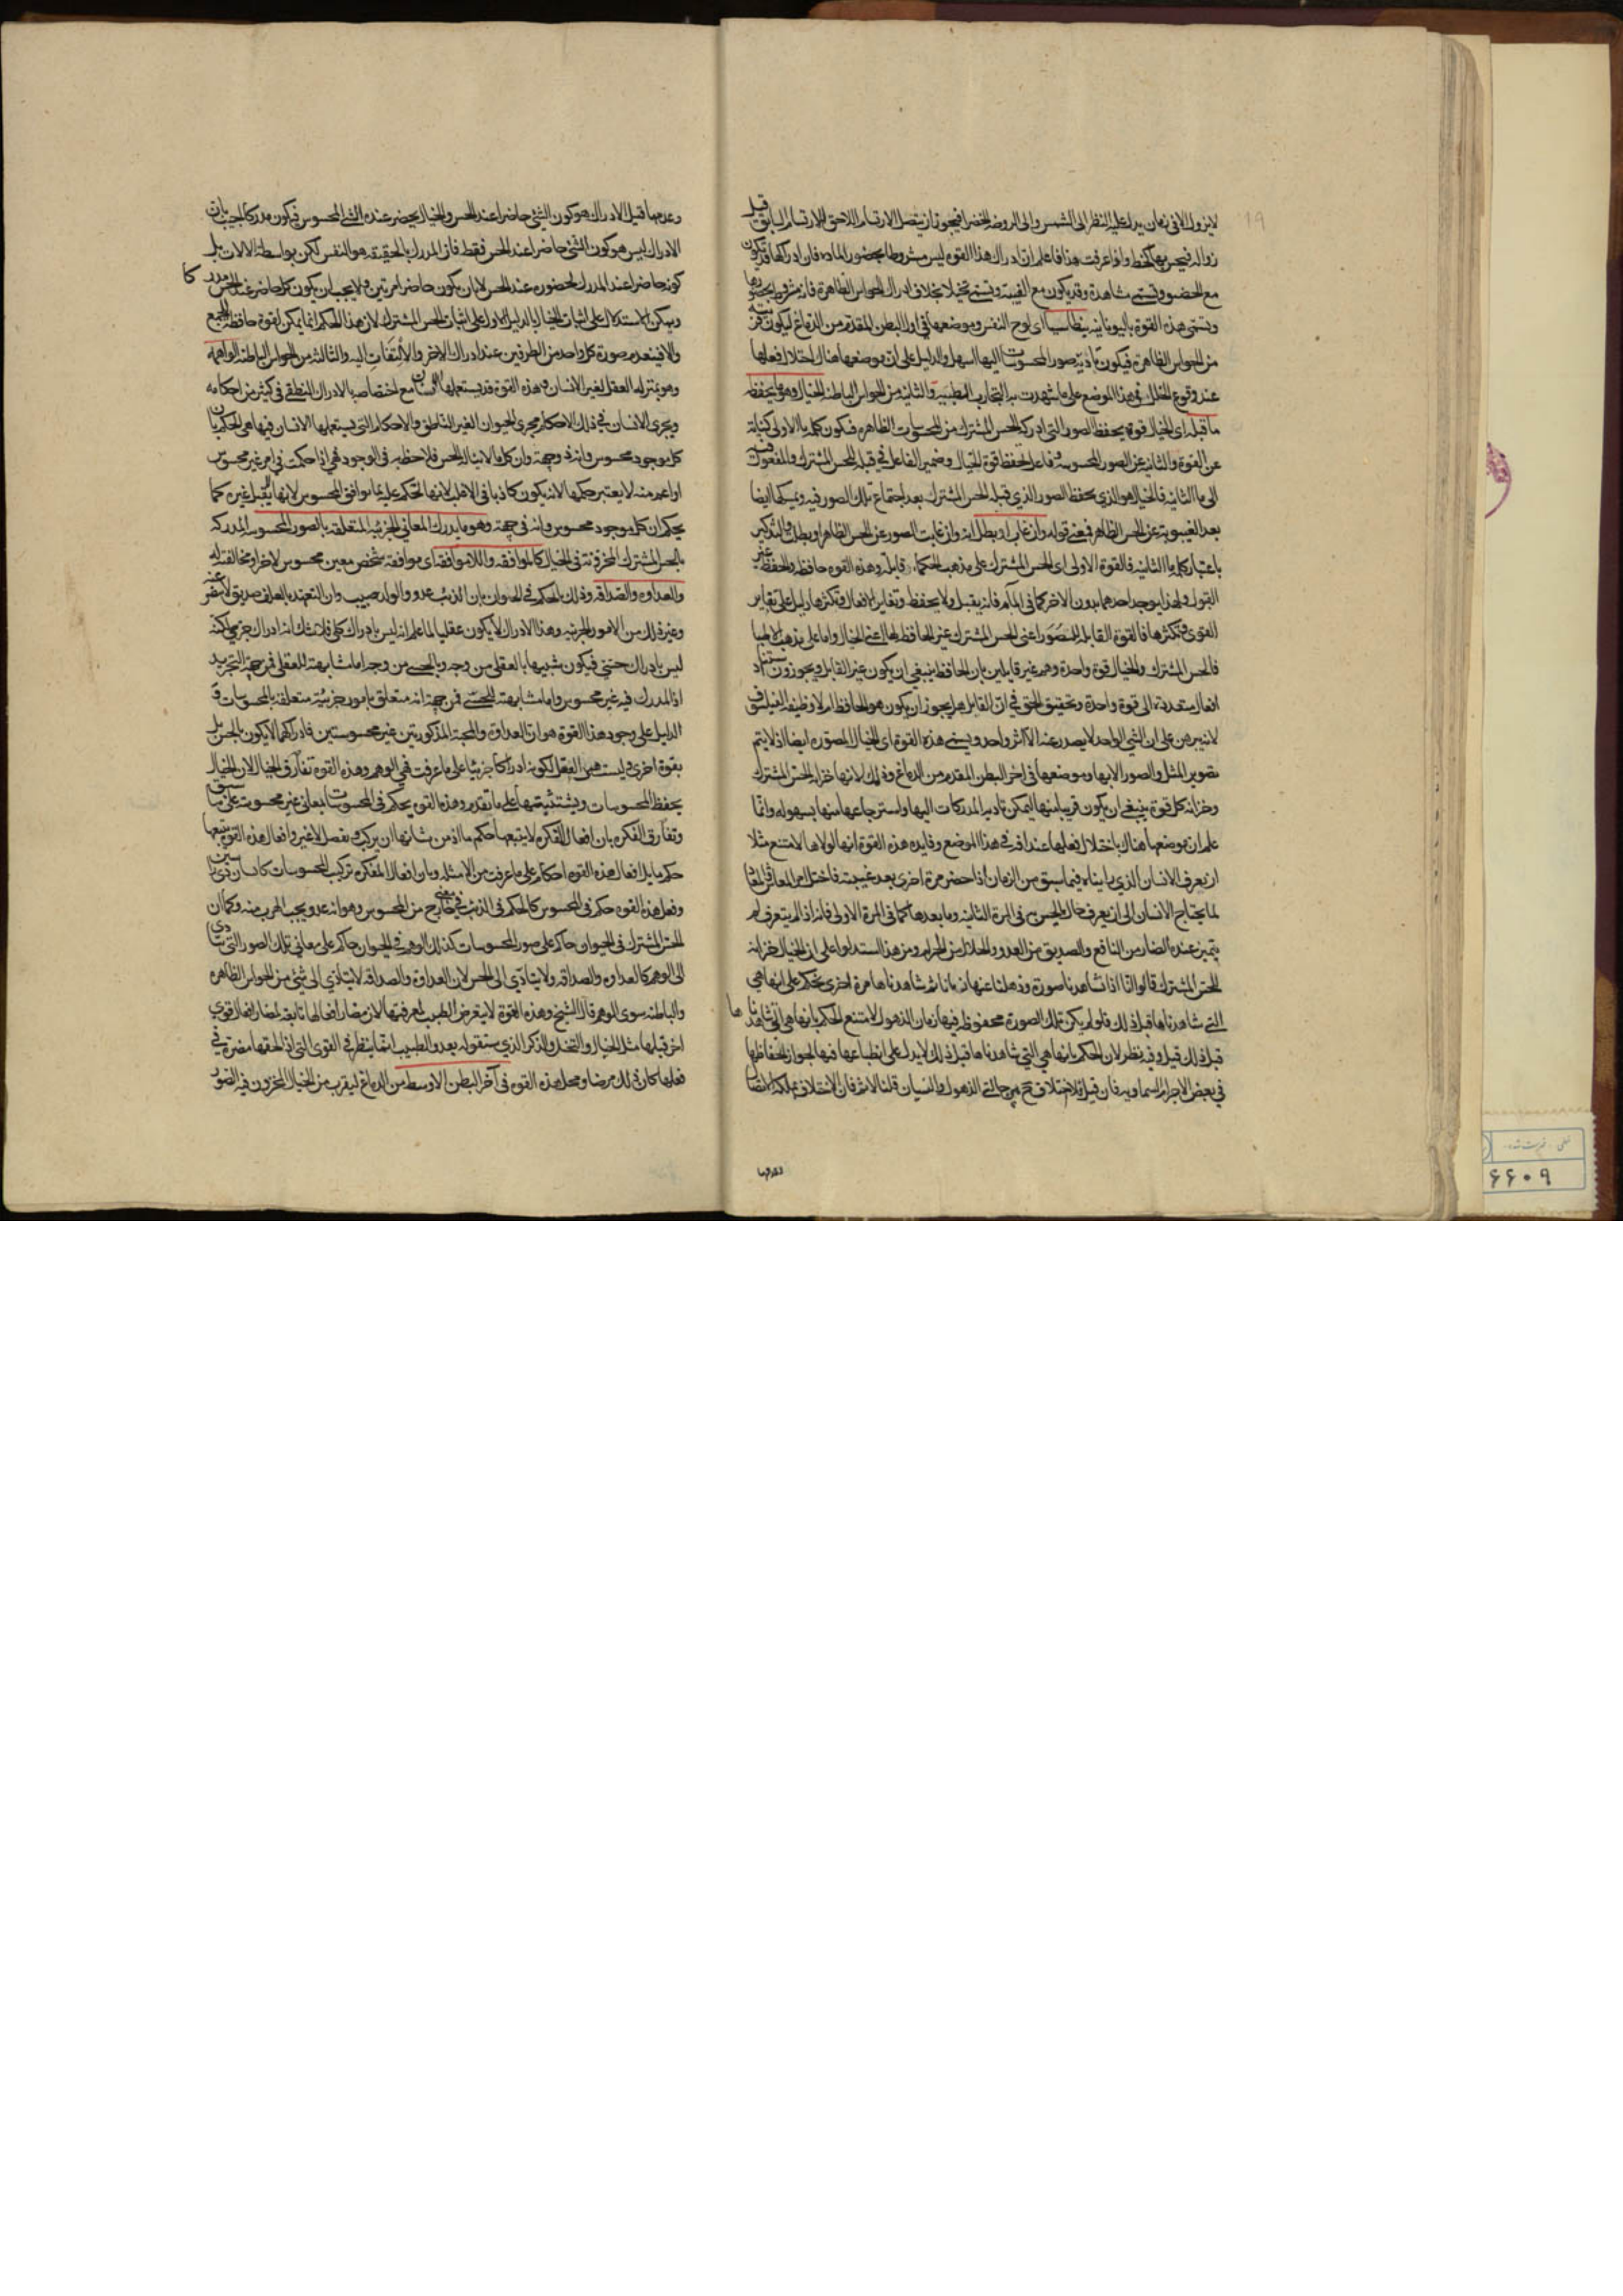 لا يزول الا في زمان يدل عليه النظر الى الشمس والى الروضة الخضرا فيجوز ان يتصل الارتسام اللاحق بالارتسام السابق قبل
زواله فيحس بها كخط واذا عرفت هذا فاعلم ان ادراك هذا القوه ليس مشروطا بحضور الماده فان ادراكها قد يكون
مع الحضور وتسمى مشاهدة وقد يكون مع الغيبة وتسمى تخيلا بخلاف ادراك الحواس الظاهرة فانه مشروط بحضورها
وتسمى هذه القوة باليونانيه بنطاسيا اى لوح النفس وموضعها في اول البطن المقدم من الدماغ ليكون قريبة
من الحواس الظاهرة فيكون تأدية صور المحسوسات اليها اسهل والدليل على ان موضعها هناك اختلال فعلها
عند وقوع الخلل في هذا الموضع على ما شهدت به التجارب الطبية والثانية من الحواس الباطنة الخيال وهو ما يحفظ
ما قبله اى الخيال قوة يحفظ الصور التي ادركه الحس المشترك من المحسوسات الظاهره فيكون كلمة ما الاولى كناية
عن القوة والثانيه عن الصور المحسوسة وفاعل الحفظ قوة الخيال وضمير الفاعل في قبله للحس المشترك والمفعول
الى ما الثانيه فالخيال هو الذي يحفظ الصور الذي قبله الحس المشترك بعد اجتماع تلك الصور فيه ويمسكها ايضا
بعد الغيبوبة عن الحس الظاهر فمعنى قوله وان غاب او بطل انه وان غابت الصور عن الحس الظاهر او بطلت والتذكير
باعتبار كلمة ما الثانيه فالقوة الاولى اى الحس المشترك على مذهب الحكماء قابلة وهذه القوه حافظة والحفظ غير
القبول ولهذا يوجد احدهما بدون الاخر كما في الماء فانه يقبل ولا يحفظ وتغاير الافعال وتكثرها دليل على تغاير
القوى وتكثرها فالقوة القابلة للصور اعنى الحس المشترك غير الحافظة لها اعنى الخيال واما على مذهب الاطبا
فالحس المشترك والخيال قوة واحدة وهم غير قايلين بان الحافظ ينبغي ان يكون غير القابل ويجوزون استناد
افعال متعددة الى قوة واحدة وتحقيق الحق في ان القابل هل يجوز ان يكون هو الحافظ ام لا وظيفة الفيلسوف
لانه يبرهن على ان الشي الواحد لا يصدر عنه الا اثر واحد ويسمى هذه القوة اى الخيال المصوره ايضا اذ لا يتم
تصوير المثل والصور الا بها وموضعها في اخر البطن المقدم من الدماغ وذلك لانها خزانة الحس المشترك
وخزانة كل قوة ينبغي ان يكون قريبا منها ليمكن تأدية المدركات اليها واسترجاعها منها بسهوله وانما
علم ان موضعها هناك باختلال فعلها عند افة في هذا الموضع وفايده هذه القوة انها لولاها لامتنع مثلا
ان يعرف الانسان الذي رايناه فيما سبق من الزمان اذا حضر مرة اخرى بعد غيبته فاختل امر المعاش
لما يحتاج الانسان الى ان يعرف حال المحسوس في المرة الثانيه وما بعدها كما في المرة الاولى فانه اذا لم يتعرف لم
يتميز عنده الضار من النافع والصديق من العدو والحلال من الحرام ومن هذا استدلوا على ان الخيال خزانة
للحس المشترك قالوا انا اذا شاهدنا صورة وذهلنا عنها زمانا ثم شاهدناها مرة اخرى نحكم على انها هي
التي شاهدناها قبل ذلك فلو لم يكن تلك الصورة محفوظة فيها زمان الذهول لامتنع الحكم بانها هي التي شاهدناها
قبل ذلك قيل وفيه نظر لان الحكم بانها هي التي شاهدناها قبل ذلك لا يدل على انطباعها فيها لجواز انحفاظها
في بعض الاجرام السماويه فان قيل فلا اختلاف ح بين حالتي الذهول والنسيان قلنا لا نم فان الاختلاف بملكة الاتصال
وعدمها قيل الادراك هو كون الشئ حاضرا عند الحس والخيال يحضر عنده الشئ المحسوس فيكون مدركا اجيب بان
الادراك ليس هو كون الشئ حاضرا عند الحس فقط فان المدرك بالحقيقة هو النفس لكن بواسطة الالات بل
كونه حاضرا عند المدرك لحضوره عند الحس لا بان يكون حاضرا مرتين ولا يجب ان يكون كل حاضر عند الحس مدركا
ويمكن الاستدلال على اثبات الخيال بالدليل الاول على اثبات الحس المشترك لان هذا الحكم انما يمكن لقوة حافظة للجميع
والا فينعدم صورة كل واحد من الطرفين عند ادراك الاخر والالتفات اليه والثالثه من الحواس الباطنة الواهمة
وهو بمنزله العقل لغير الانسان وهذه القوة قد يستعملها الانسان مع اختصاصه بالادراك النطقي في كثير من احكامه
ويجرى الانسان في ذلك الاحكام مجرى الحيوان الغير الناطق والاحكام التي يستعملها الانسان فيها هي الحكم بان
كل موجود محسوس وانه في جهة وان كل ما لا يناله الحس فلا حظ له في الوجود فهي اذا حكمت في امر غير محسوس
او اعم منه لا يعتبر حكمها لانه يكون كاذبا في الاغلب لانها تحكم عليه بما يوافق المحسوس لانها لا يقبل غيره كما
يحكم ان كل موجود محسوس وانه في جهة وهو ما يدرك المعاني الجزئيه المتعلقة بالصور المحسوسة المدركة
بالحس المشترك المخزونة في الخيال كالموافقة واللاموافقة اى موافقة شخص معين محسوس لاخر او مخالفته له
والعداوه والصداقة وذلك كالحكم في الحيوان بان الذئب عدو والولد حبيب وان المتعهد بالعلف صديق لا ينفر عنه
وغير ذلك من الامور الجزئيه وهذا الادراك لا يكون عقليا لما علم انه ليس بادراك كلي فلا شك انه ادراك جزئي لكنه
ليس بادراك حسي فيكون شبيها بالعقلى من وجه وبالحسى من وجه اما مشابهته للعقلى فمن جهة التجريد
اذ المدرك فيه غير محسوس واما مشابهته للحسى فمن جهة انه متعلق بامور جزئية متعلقة بالمحسوسات و
الدليل على وجود هذا القوة هو ان العداوة والمحبة المذكورتين غير محسوستين فادراكهما لا يكون بالحس بل
بقوة اخرى وليست هي العقل لكونه ادراكا جزئيا على ما عرفت فهى الوهم وهذه القوه تفارق الخيال لان الخيال
يحفظ المحسوسات ويستثبتها على ما تقدم وهذه القوه يحكم في المحسوسات بمعاني غير محسوسة على ما سبق
وتفارق الفكره بان افعال الفكره لا يتبعها حكم ما اذ من شانها ان يركب ويفصل لا غير وافعال هذه القوه يتبعها
حكم ما بل افعال هذه القوه احكام على ما عرفت من الامثله وبان افعال المفكره تركيب المحسوسات كانسان ذي راسين
وفعل هذه القوه حكم في المحسوس كالحكم في الذئب في معنى خارج من المحسوس وهو انه عدو يجب الهرب منه وكما ان
الحس المشترك في الحيوان حاكم على صور المحسوسات كذلك الوهم في الحيوان حاكم على معاني تلك الصور التي يتادى
الى الوهم كالعداوه والصداقه ولا يتادى الى الحس لان العداوة والصداقه لا يتادى الى شئ من الحواس الظاهره
والباطنه سوى الوهم قال الشيخ وهذه القوة لا يتعرض الطبيب لمعرفتها لان مضار افعالها تابعة لمضار افعال قوى
اخر قبلها مثل الخيال والتخيل والذكر الذى سنقوله بعد والطبيب انما ينظر في القوى التي اذا لحقها مضرة في
فعلها كان ذلك مرضا ومحل هذه القوه في آخر البطن الاوسط من الدماغ ليقرب من الخيال المخزون فيه الصور
خطى
٦٦٠٩